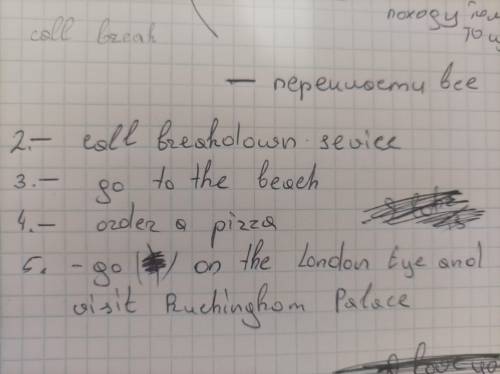 походу
call break
— перенности все
2.— call breakdown sevice
3.— go to the beach
4.— order a pizza
5. - go on the London Eye and
visit Buchinghom Palace